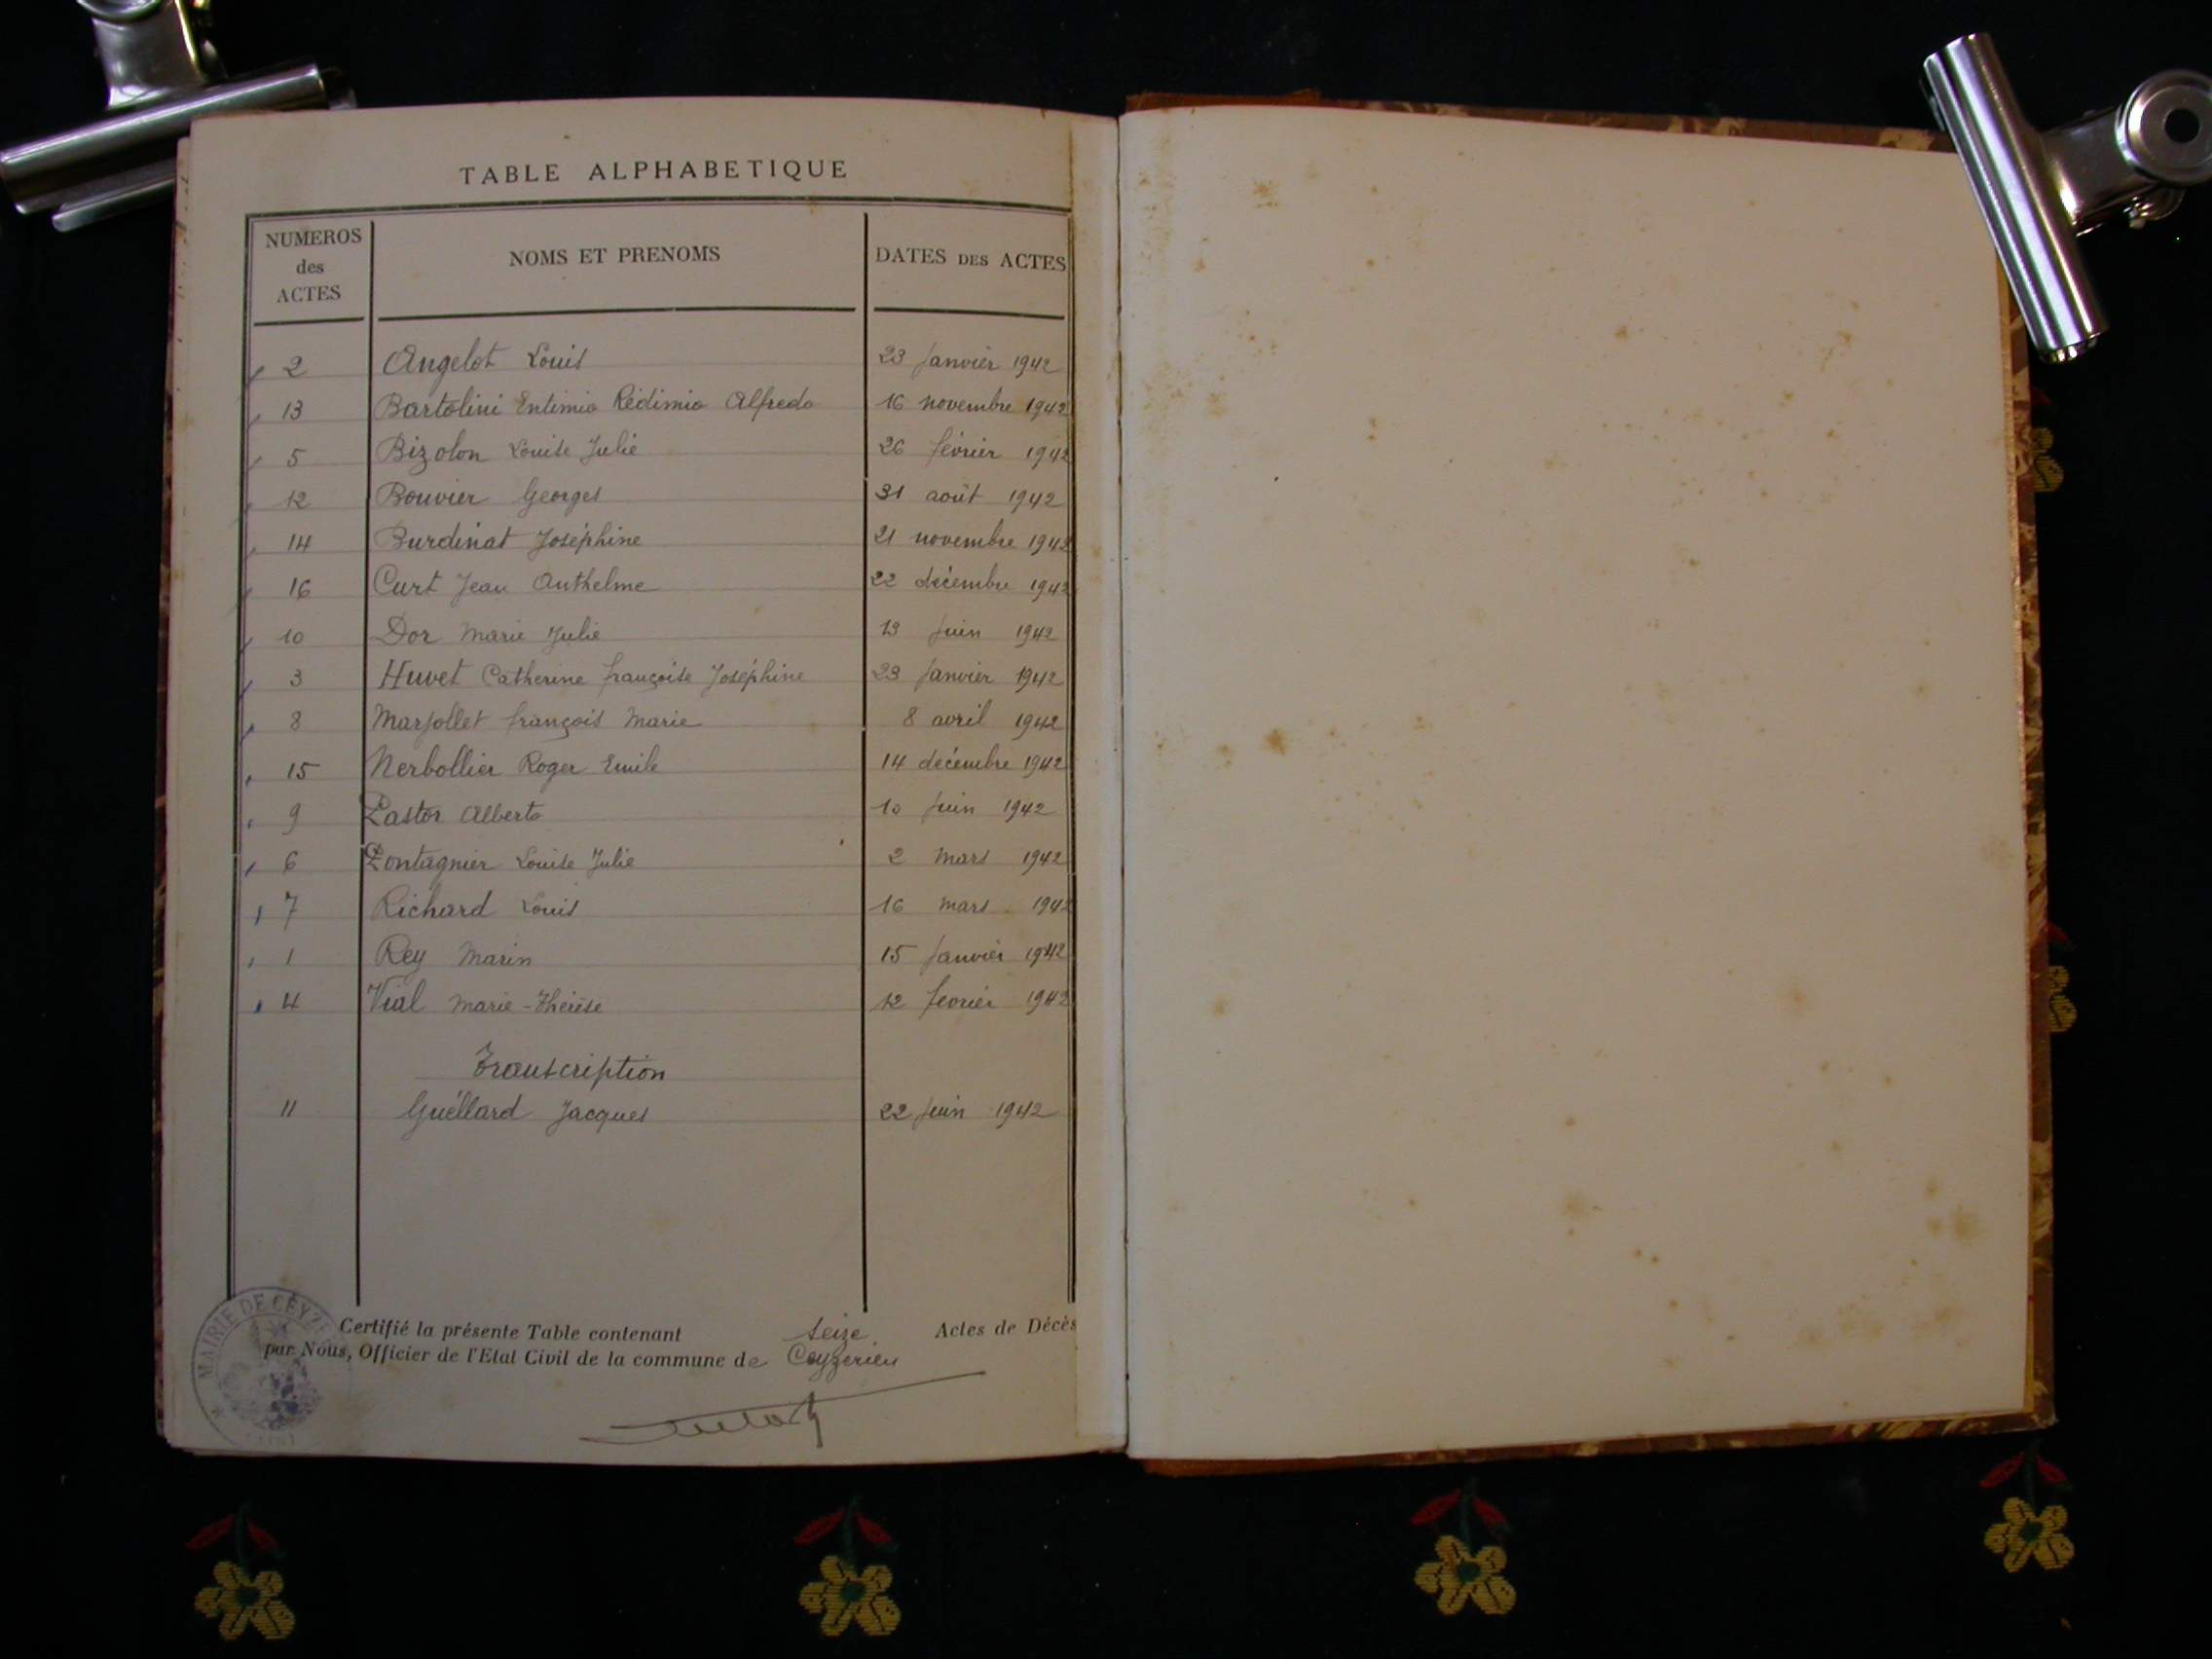 TABLE ALPHABETIQUE
NUMEROS des ACTES NOMS ET PRENOMS DATES DES ACTES
2 Angelot Louis 23 janvier 1942
13 Bartolini Entimio Rédimio Alfredo 16 novembre 1942
5 Bizolon Louise Julie 26 février 1942
12 Bouvier Georges 31 août 1942
14 Burdinat Joséphine 21 novembre 1942
16 Curt Jean Anthelme 22 décembre 1942
10 Dor Marie Julie 13 juin 1942
3 Huvet Catherine françoise Joséphine 23 janvier 1942
8 Marjollet françois Marie 8 avril 1942
15 Nerbollier Roger Emile 14 décembre 1942
9 Pastor Alberto 10 juin 1942
6 Pontagnier Louise Julie 2 mars 1942
7 Richard Louis 16 mars 1942
1 Rey Marin 15 janvier 1942
4 Vial Marie-Thérèse 12 février 1942
Transcription
11 Guéllard Jacques 22 juin 1942
Certifié la présente Table contenant seize Actes de Décès
par Nous, Officier de l'Etat Civil de la commune de Ceyzerieu
MAIRIE DE CEYZE